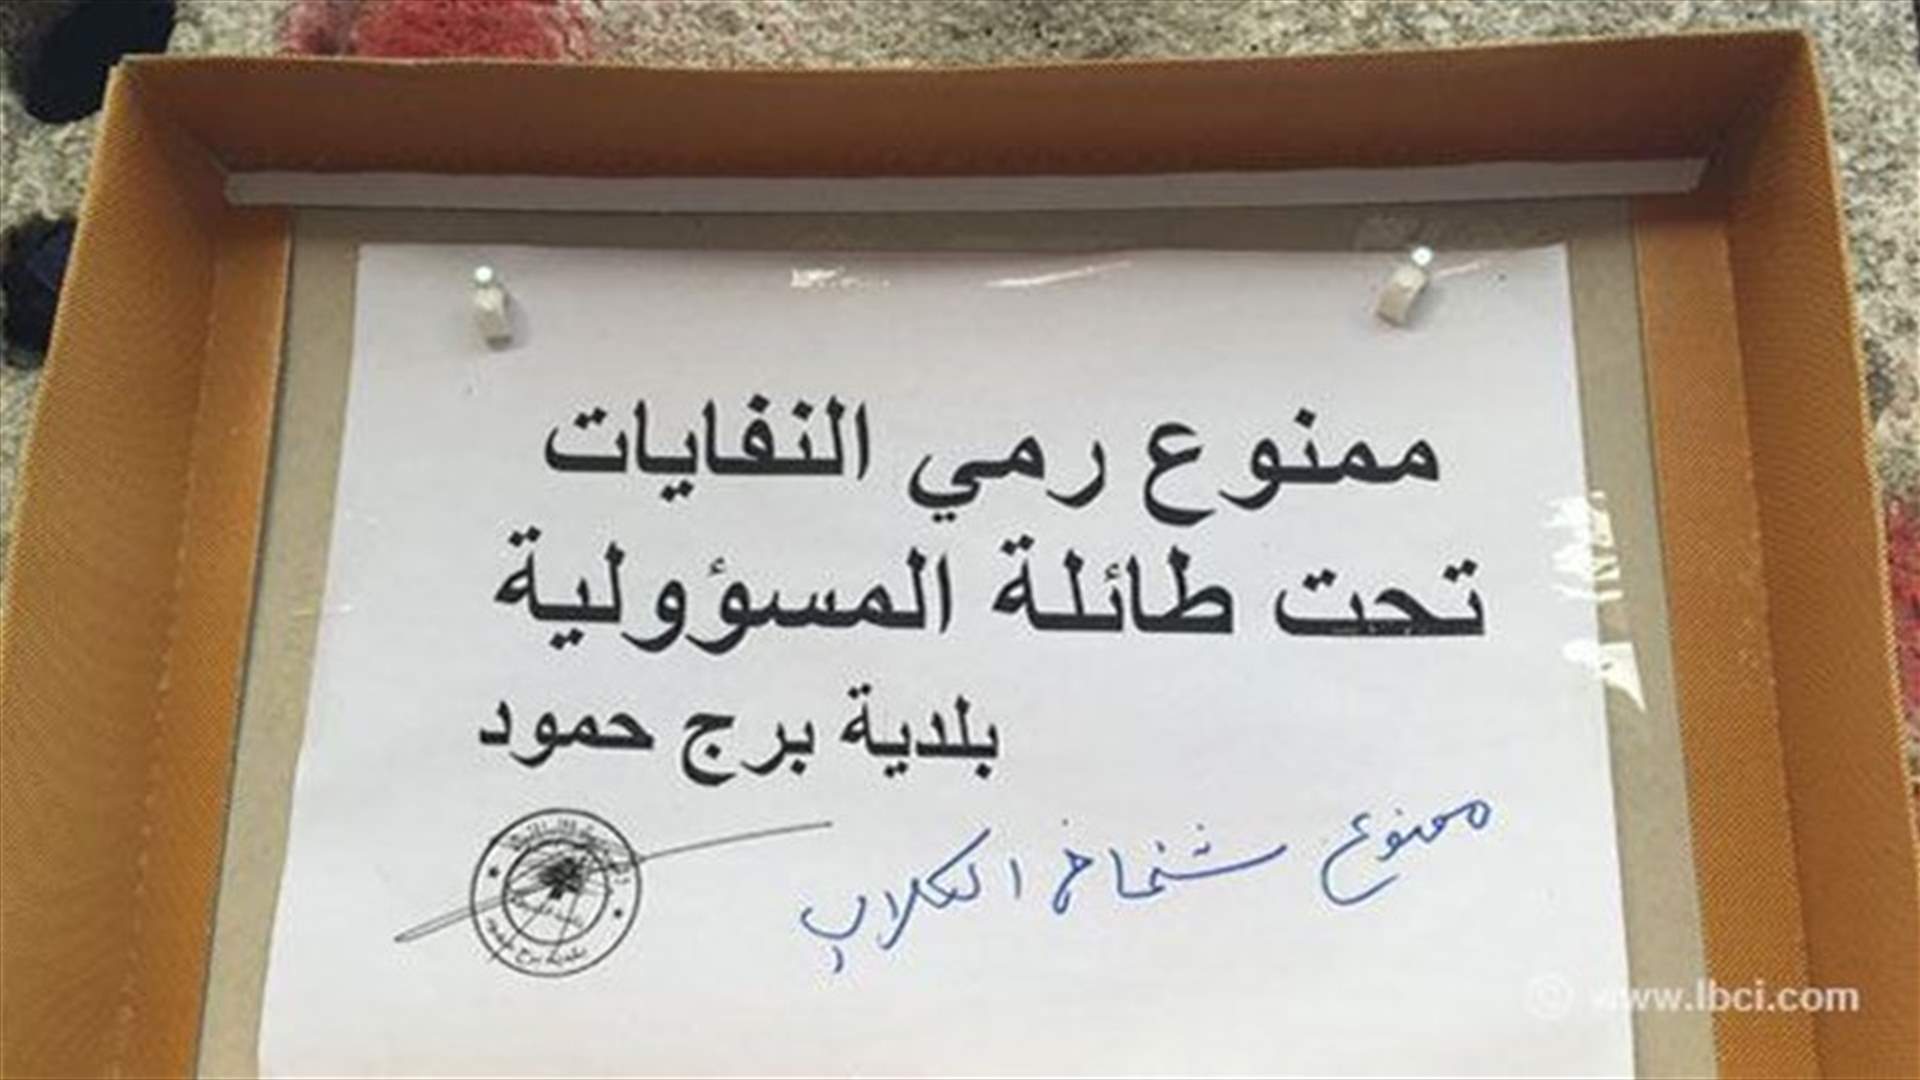 ممنوع رمي النفايات
تحت طائلة المسؤولية
بلدية برج حمود
ممنوع شخاخ الكلاب
بلدية برج حمود
www.lbci.com